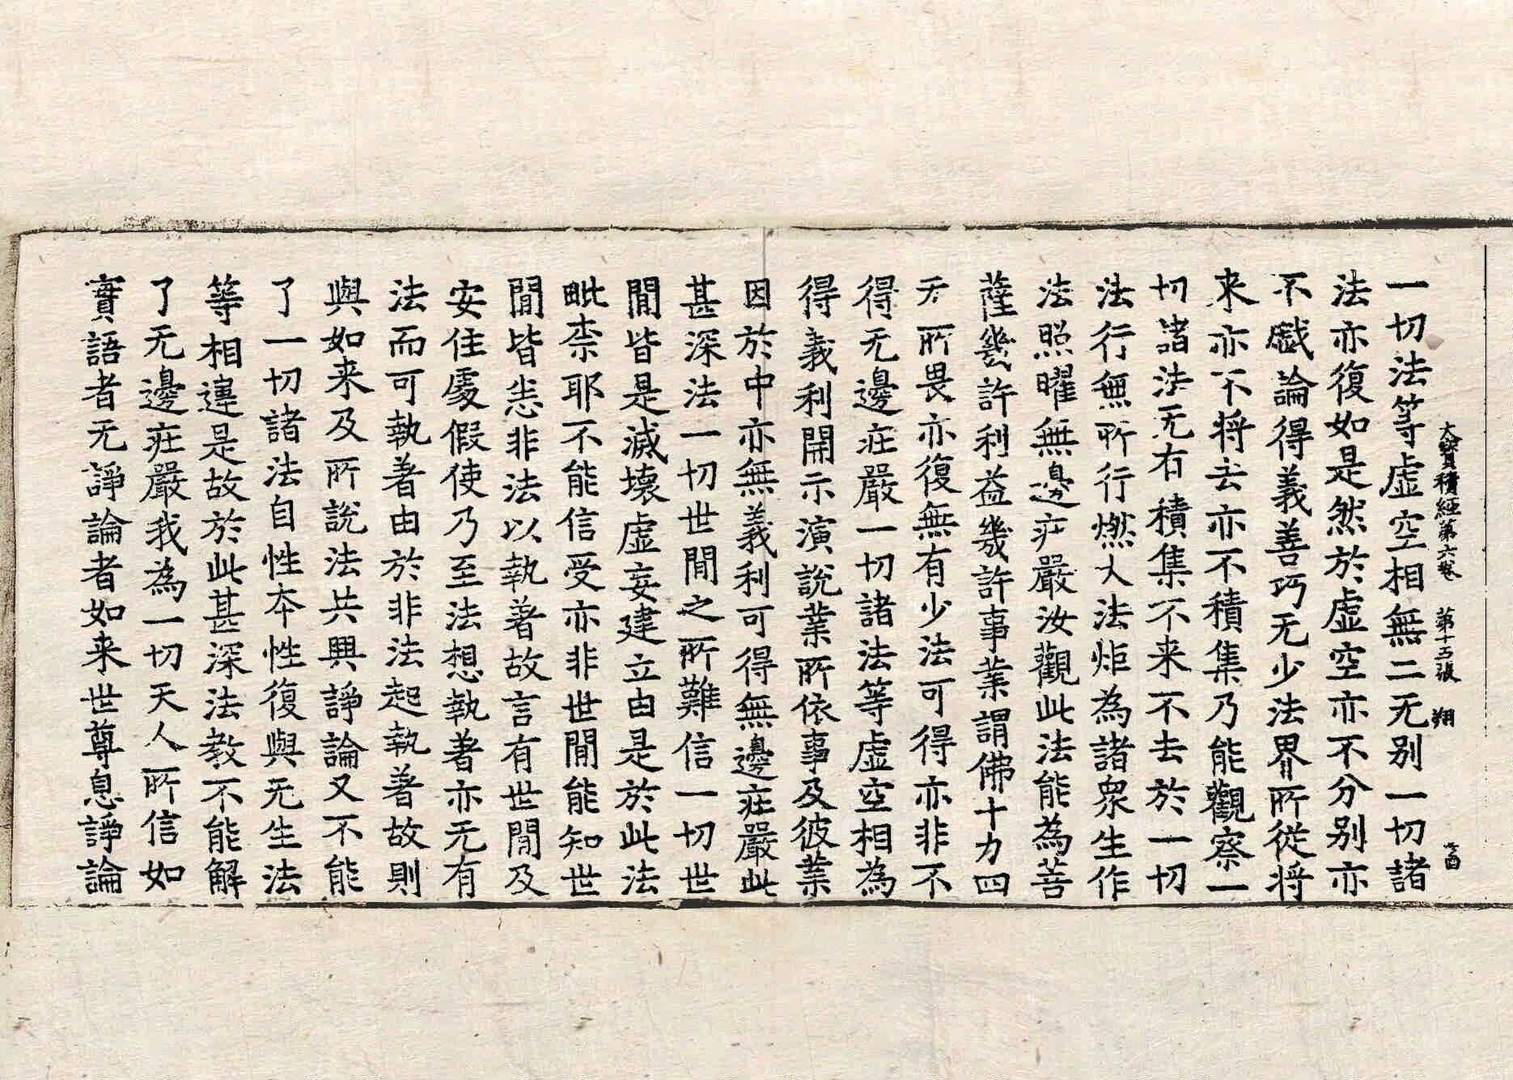 大寶積經第六卷 第十五張 翔
一切法等虛空相無二无别一切諸
法亦復如是然於虛空亦不分别亦
不戲論得義善巧无少法界所從將
来亦不将去亦不積集乃能觀察一
切諸法无有積集不来不去於一切
法行無所行燃大法炬為諸衆生作
法照曜無邊疘嚴汝觀此法能為菩
薩幾許利益幾許事業謂佛十力四
无所畏亦復無有少法可得亦非不
得无邊疘嚴一切諸法等虛空相為
得義利開示演說業所依事及彼業
因於中亦無義利可得無邊疘嚴此
甚深法一切世閒之所難信一切世
閒皆是滅壞虛妄建立由是於此法
毗柰耶不能信受亦非世閒能知世
閒皆悉非法以執著故言有世閒及
安住處假使乃至法想執著亦无有
法而可執著由於非法起執著故則
與如来及所說法共興諍論又不能
了一切諸法自性夲性復與无生法
等相違是故於此甚深法教不能解
了无邊疘嚴我為一切天人所信如
實語者无諍論者如来世尊息諍論